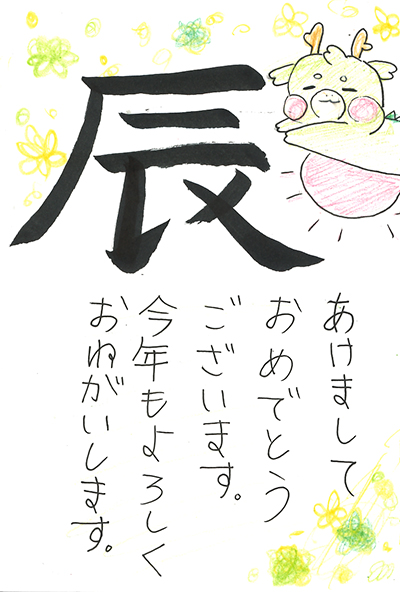 辰
あけまして
おめでとう
ございます。
今年もよろしく
おねがいします。